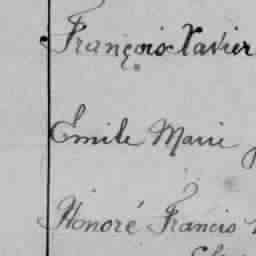 François Xavier
Emile Marie
Honoré Francis